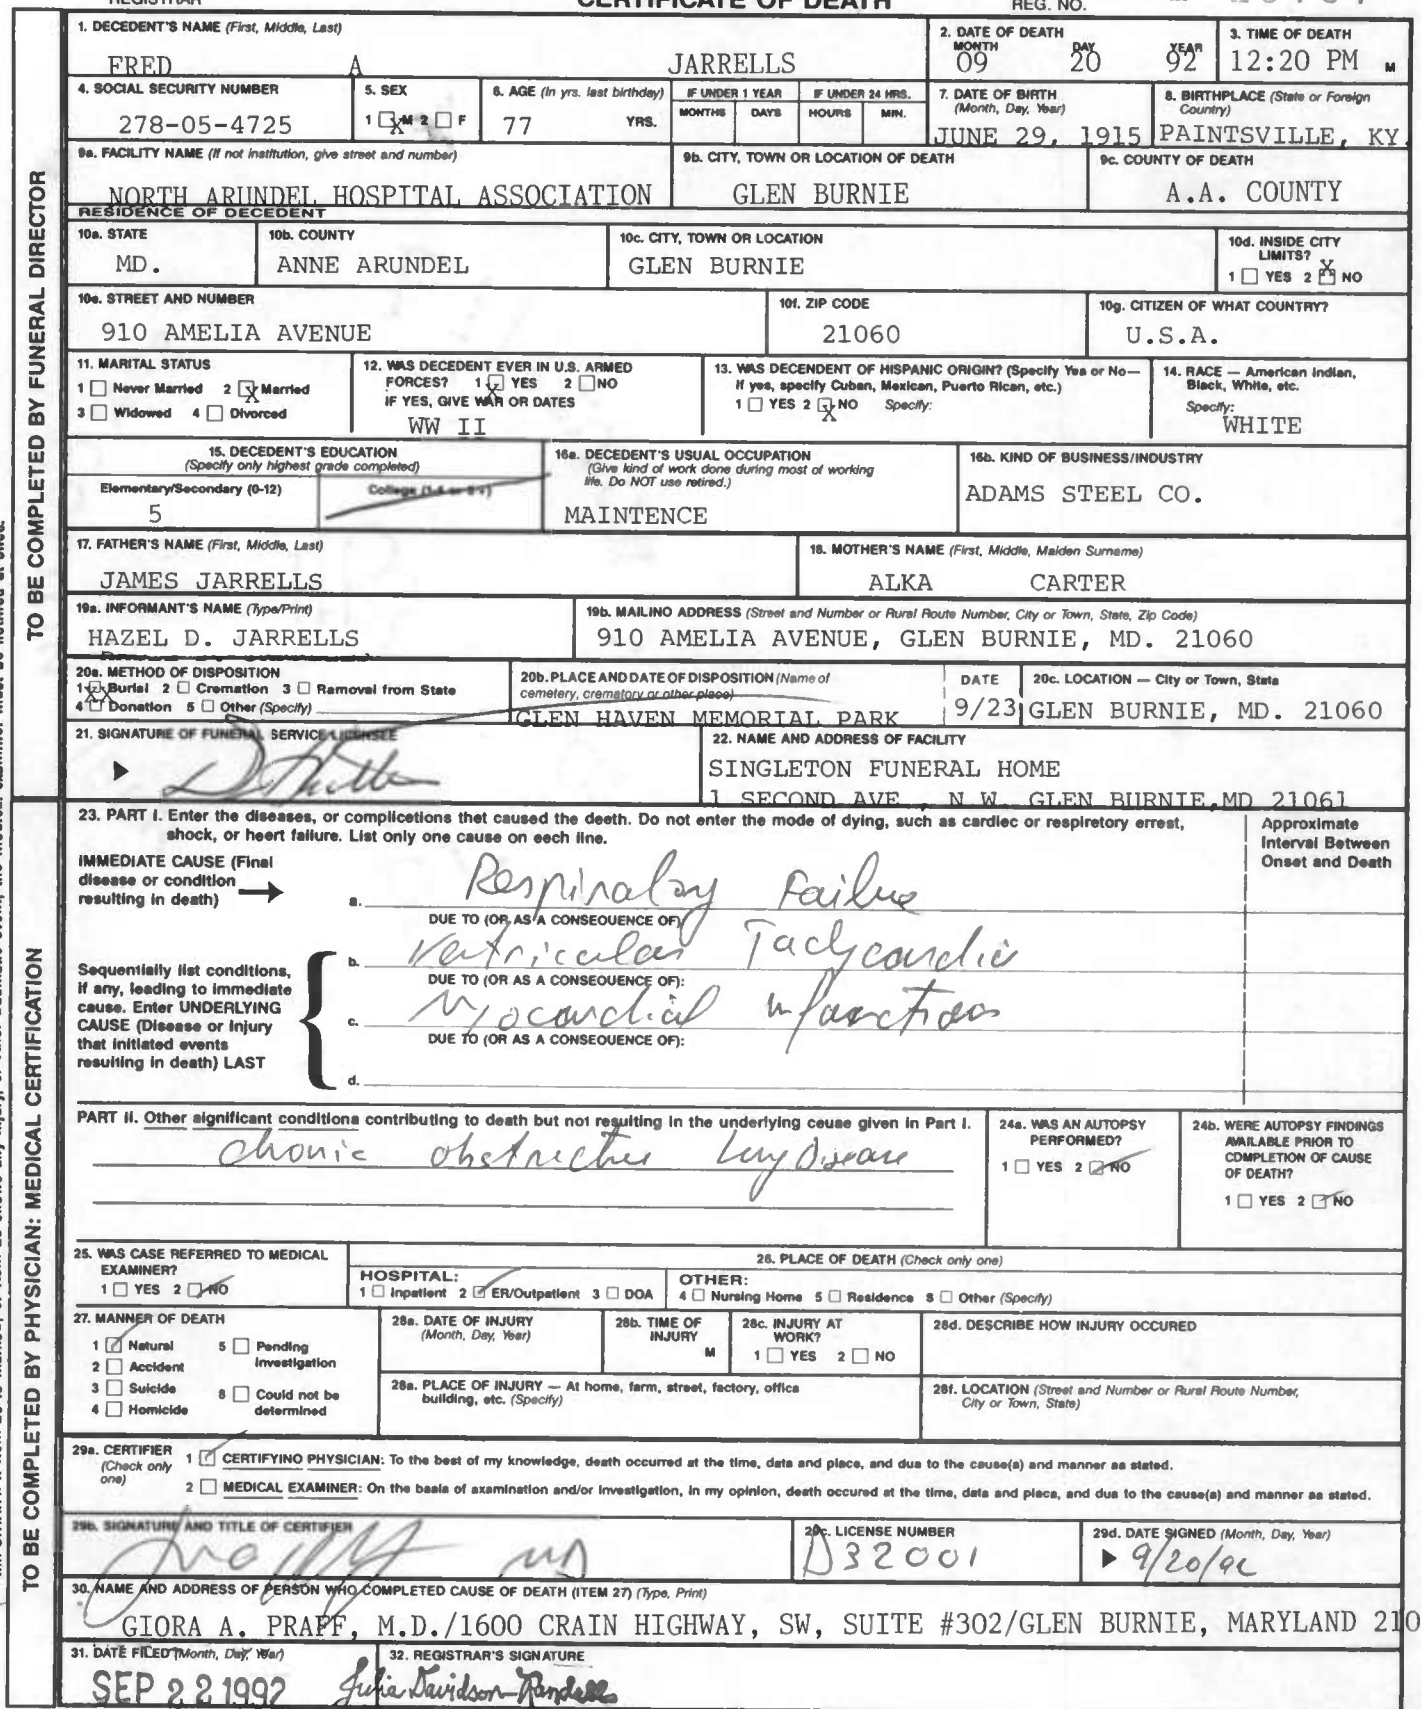 REGISTRAR CERTIFICATE OF DEATH REG. NO.
1. DECEDENT'S NAME (First, Middle, Last)
FRED A JARRELLS
2. DATE OF DEATH
MONTH DAY YEAR
09 20 92
3. TIME OF DEATH
12:20 PM M
4. SOCIAL SECURITY NUMBER
278-05-4725
5. SEX
1 X M 2 F
6. AGE (In yrs. last birthday)
77 YRS.
IF UNDER 1 YEAR
MONTHS DAYS
IF UNDER 24 HRS.
HOURS MIN.
7. DATE OF BIRTH
(Month, Day, Year)
JUNE 29, 1915
8. BIRTHPLACE (State or Foreign
Country)
PAINTSVILLE, KY.
9a. FACILITY NAME (If not institution, give street and number)
NORTH ARUNDEL HOSPITAL ASSOCIATION
9b. CITY, TOWN OR LOCATION OF DEATH
GLEN BURNIE
9c. COUNTY OF DEATH
A.A. COUNTY
RESIDENCE OF DECEDENT
10a. STATE
MD.
10b. COUNTY
ANNE ARUNDEL
10c. CITY, TOWN OR LOCATION
GLEN BURNIE
10d. INSIDE CITY
LIMITS?
1 YES 2 X NO
10e. STREET AND NUMBER
910 AMELIA AVENUE
10f. ZIP CODE
21060
10g. CITIZEN OF WHAT COUNTRY?
U.S.A.
11. MARITAL STATUS
1 Never Married 2 X Married
3 Widowed 4 Divorced
12. WAS DECEDENT EVER IN U.S. ARMED
FORCES? 1 X YES 2 NO
IF YES, GIVE WAR OR DATES
WW II
13. WAS DECENDENT OF HISPANIC ORIGIN? (Specify Yes or No—
If yes, specify Cuban, Mexican, Puerto Rican, etc.)
1 YES 2 X NO Specify:
14. RACE — American Indian,
Black, White, etc.
Specify:
WHITE
15. DECEDENT'S EDUCATION
(Specify only highest grade completed)
Elementary/Secondary (0-12) College (1-4 or 5+)
5
16a. DECEDENT'S USUAL OCCUPATION
(Give kind of work done during most of working
life. Do NOT use retired.)
MAINTENCE
16b. KIND OF BUSINESS/INDUSTRY
ADAMS STEEL CO.
17. FATHER'S NAME (First, Middle, Last)
JAMES JARRELLS
18. MOTHER'S NAME (First, Middle, Maiden Surname)
ALKA CARTER
19a. INFORMANT'S NAME (Type/Print)
HAZEL D. JARRELLS
19b. MAILING ADDRESS (Street and Number or Rural Route Number, City or Town, State, Zip Code)
910 AMELIA AVENUE, GLEN BURNIE, MD. 21060
20a. METHOD OF DISPOSITION
1 X Burial 2 Cremation 3 Removal from State
4 Donation 5 Other (Specify)
20b. PLACE AND DATE OF DISPOSITION (Name of
cemetery, crematory or other place)
GLEN HAVEN MEMORIAL PARK
DATE
9/23
20c. LOCATION — City or Town, State
GLEN BURNIE, MD. 21060
21. SIGNATURE OF FUNERAL SERVICE LICENSEE
22. NAME AND ADDRESS OF FACILITY
SINGLETON FUNERAL HOME
1 SECOND AVE., N.W. GLEN BURNIE, MD 21061
TO BE COMPLETED BY FUNERAL DIRECTOR
23. PART I. Enter the diseases, or complications that caused the death. Do not enter the mode of dying, such as cardiac or respiratory arrest,
shock, or heart failure. List only one cause on each line.
Approximate
Interval Between
Onset and Death
IMMEDIATE CAUSE (Final
disease or condition
resulting in death)
a. Respiratory Failure
DUE TO (OR AS A CONSEQUENCE OF):
b. Ventricular Tachycardia
DUE TO (OR AS A CONSEQUENCE OF):
c. Myocardial infarction
DUE TO (OR AS A CONSEQUENCE OF):
d.
Sequentially list conditions,
if any, leading to immediate
cause. Enter UNDERLYING
CAUSE (Disease or Injury
that initiated events
resulting in death) LAST
PART II. Other significant conditions contributing to death but not resulting in the underlying cause given in Part I.
chronic obstructive lung disease
24a. WAS AN AUTOPSY
PERFORMED?
1 YES 2 NO
24b. WERE AUTOPSY FINDINGS
AVAILABLE PRIOR TO
COMPLETION OF CAUSE
OF DEATH?
1 YES 2 NO
25. WAS CASE REFERRED TO MEDICAL
EXAMINER?
1 YES 2 NO
26. PLACE OF DEATH (Check only one)
HOSPITAL:
1 Inpatient 2 ER/Outpatient 3 DOA
OTHER:
4 Nursing Home 5 Residence 6 Other (Specify)
27. MANNER OF DEATH
1 Natural 5 Pending
Investigation
2 Accident
3 Suicide 6 Could not be
determined
4 Homicide
28a. DATE OF INJURY
(Month, Day, Year)
28b. TIME OF
INJURY
M
28c. INJURY AT
WORK?
1 YES 2 NO
28d. DESCRIBE HOW INJURY OCCURED
28e. PLACE OF INJURY — At home, farm, street, factory, office
building, etc. (Specify)
28f. LOCATION (Street and Number or Rural Route Number,
City or Town, State)
29a. CERTIFIER
(Check only
one)
1 CERTIFYING PHYSICIAN: To the best of my knowledge, death occurred at the time, date and place, and due to the cause(s) and manner as stated.
2 MEDICAL EXAMINER: On the basis of examination and/or investigation, in my opinion, death occured at the time, date and place, and due to the cause(s) and manner as stated.
29b. SIGNATURE AND TITLE OF CERTIFIER
MD
29c. LICENSE NUMBER
D32001
29d. DATE SIGNED (Month, Day, Year)
9/20/92
30. NAME AND ADDRESS OF PERSON WHO COMPLETED CAUSE OF DEATH (ITEM 27) (Type, Print)
GIORA A. PRAFF, M.D./1600 CRAIN HIGHWAY, SW, SUITE #302/GLEN BURNIE, MARYLAND 210
31. DATE FILED (Month, Day, Year)
SEP 22 1992
32. REGISTRAR'S SIGNATURE
Julia Davidson-Randall
TO BE COMPLETED BY PHYSICIAN: MEDICAL CERTIFICATION